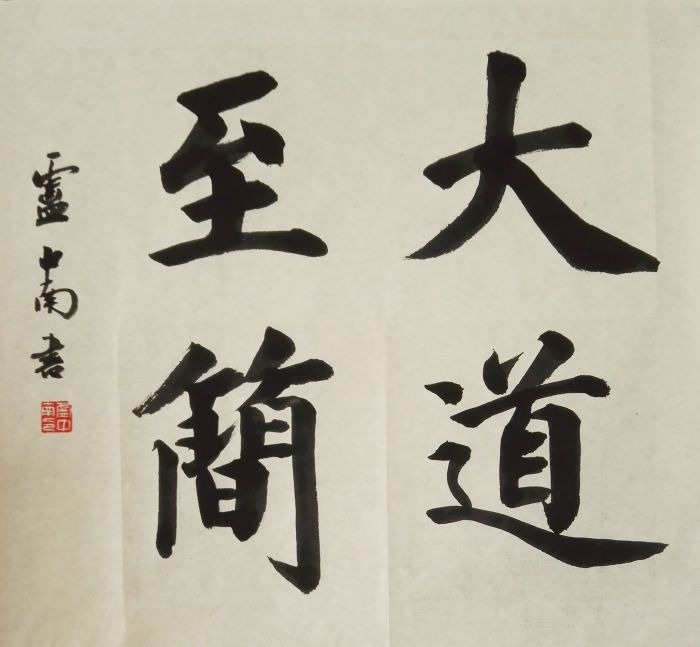 大道
至簡
盧中南書
盧中南印